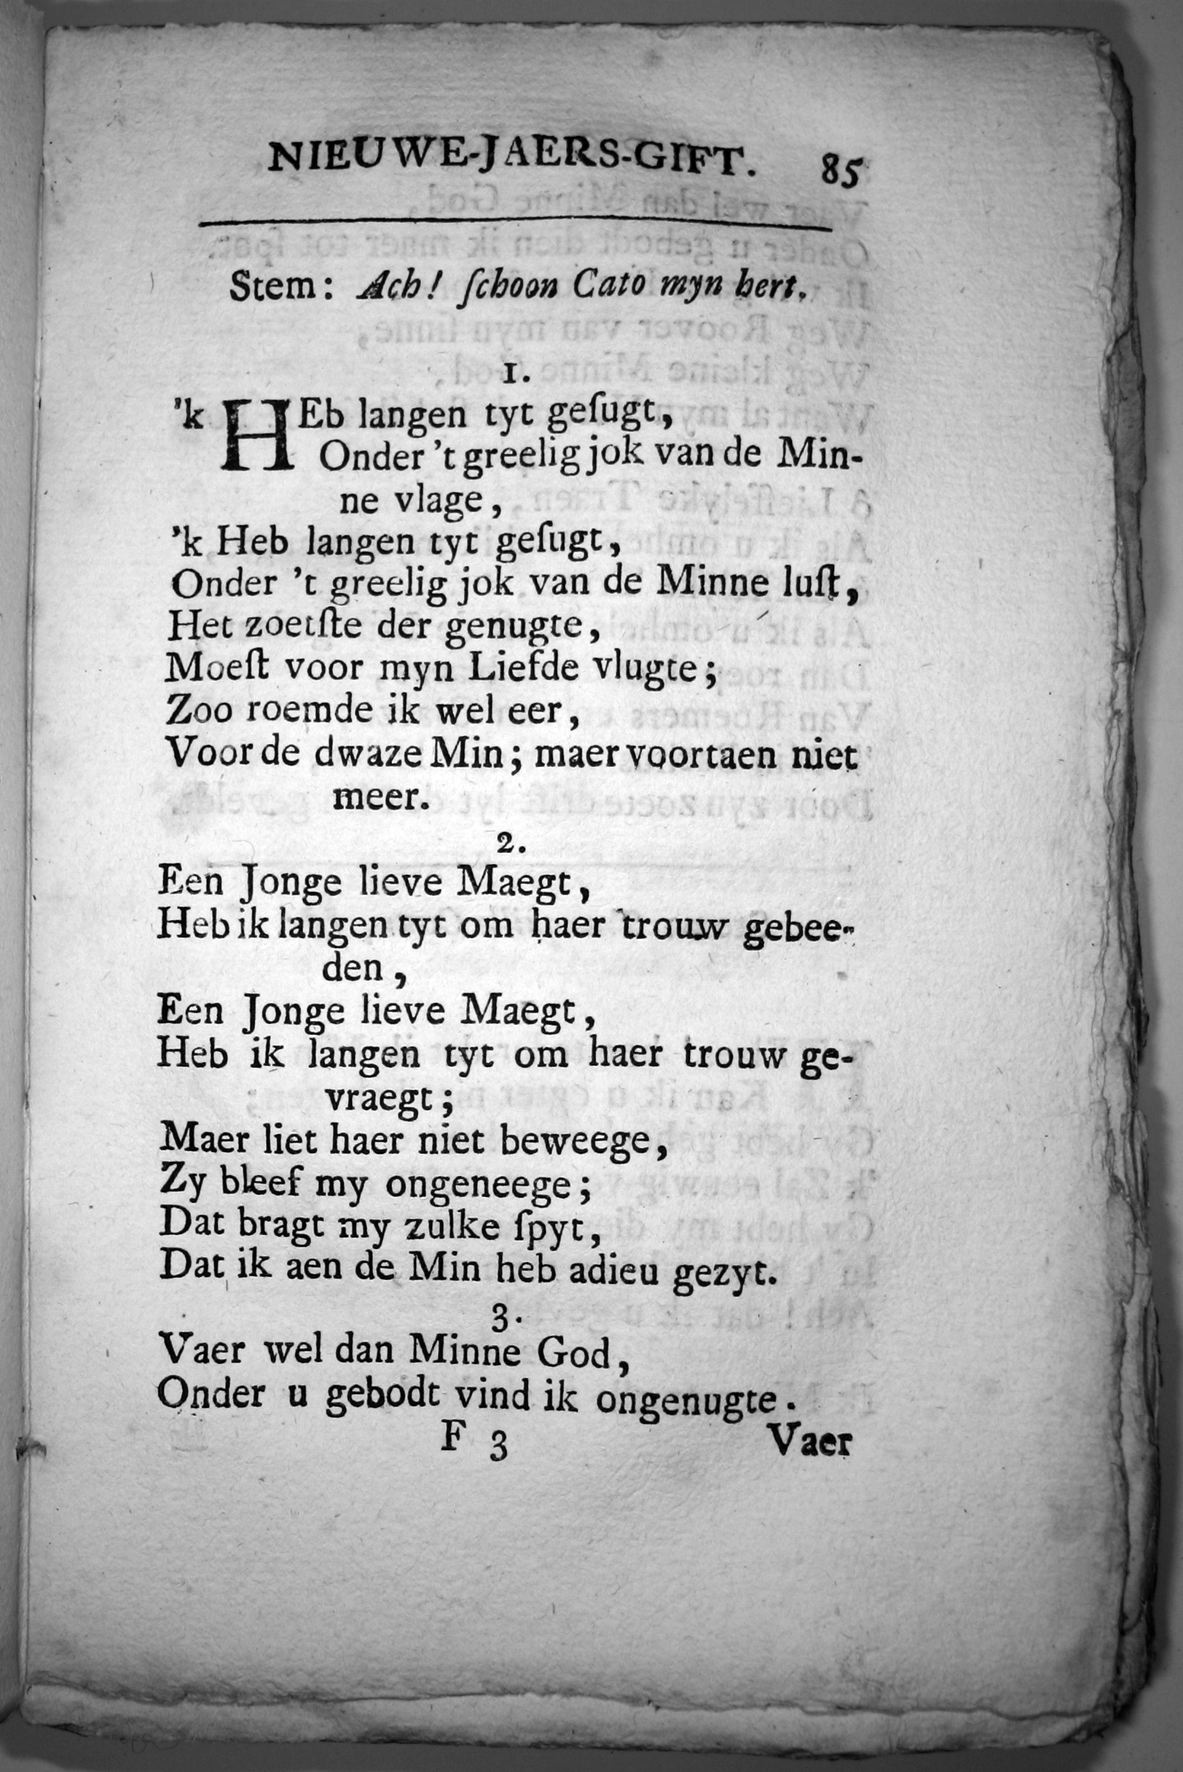 NIEUWE-JAERS-GIFT. 85
Stem: Ach! ſchoon Cato myn hert.
1.
'k HEb langen tyt geſugt,
Onder 't greelig jok van de Min-
ne vlage,
'k Heb langen tyt geſugt,
Onder 't greelig jok van de Minne luſt,
Het zoetſte der genugte,
Moeſt voor myn Liefde vlugte;
Zoo roemde ik wel eer,
Voor de dwaze Min; maer voortaen niet
meer.
2.
Een Jonge lieve Maegt,
Heb ik langen tyt om haer trouw gebee-
den,
Een Jonge lieve Maegt,
Heb ik langen tyt om haer trouw ge-
vraegt;
Maer liet haer niet beweege,
Zy bleef my ongeneege;
Dat bragt my zulke ſpyt,
Dat ik aen de Min heb adieu gezyt.
3.
Vaer wel dan Minne God,
Onder u gebodt vind ik ongenugte.
F 3 Vaer